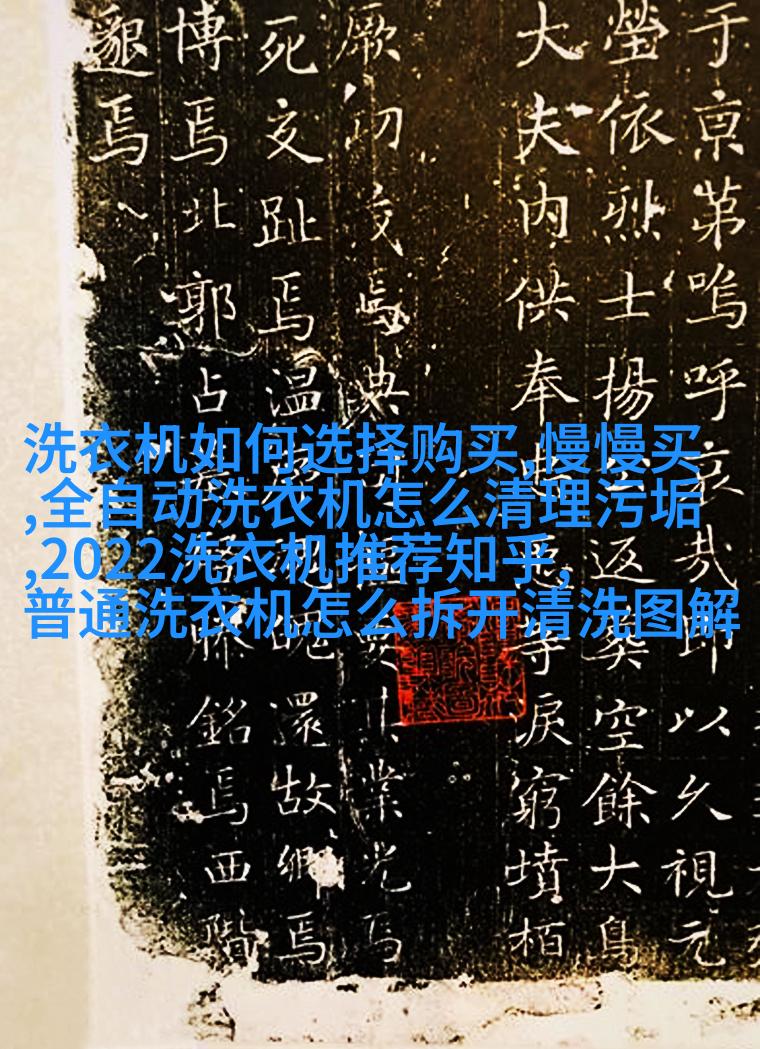 洗衣机如何选择购买,慢慢买
,全自动洗衣机怎么清理污垢
,2022洗衣机推荐知乎,
普通洗衣机怎么拆开清洗图解
于京第嗚呼哀哉即以久視元
瑩依烈士揚返葬空餘大鳥
大夫内供奉淚窮墳栢
厥焉典業光焉
死交趾焉温魄還故鄉焉
博焉北郭占銘焉西階
邈焉